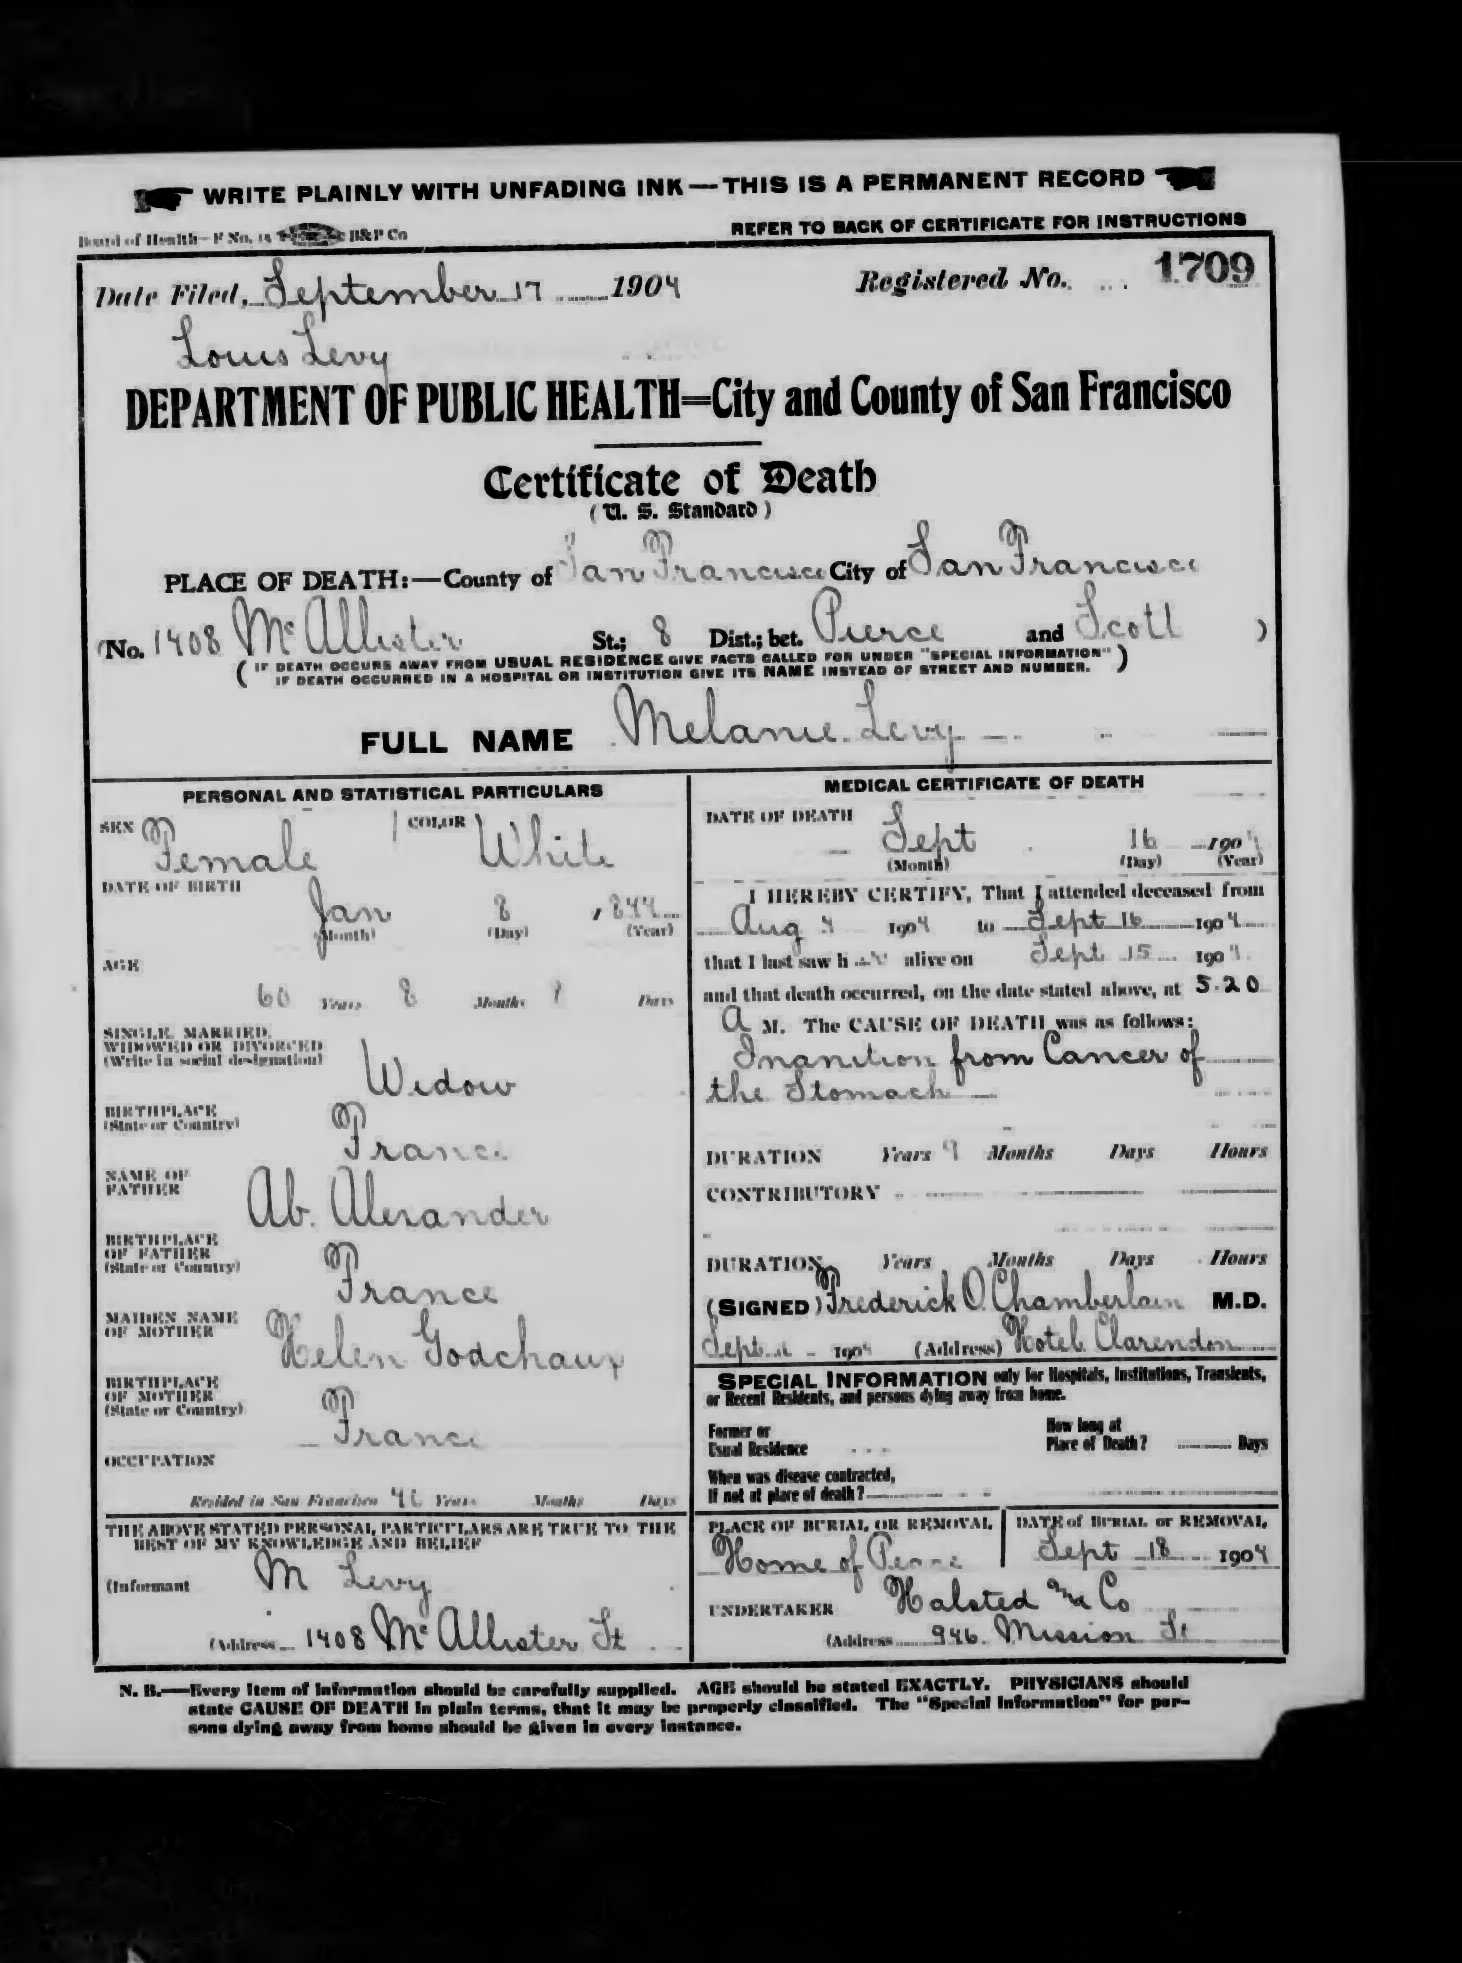 WRITE PLAINLY WITH UNFADING INK—THIS IS A PERMANENT RECORD
Board of Health—F No. B&P Co
REFER TO BACK OF CERTIFICATE FOR INSTRUCTIONS
Date Filed, September 17 1904 Registered No. 1709
Louis Levy
DEPARTMENT OF PUBLIC HEALTH=City and County of San Francisco
Certificate of Death
(U. S. Standard)
PLACE OF DEATH:—County of San Francisco City of San Francisco
(No. 1408 McAllister St.; 8 Dist.; bet. Pierce and Scott )
( IF DEATH OCCURS AWAY FROM USUAL RESIDENCE GIVE FACTS CALLED FOR UNDER "SPECIAL INFORMATION" )
IF DEATH OCCURRED IN A HOSPITAL OR INSTITUTION GIVE ITS NAME INSTEAD OF STREET AND NUMBER.
FULL NAME Melanie Levy
PERSONAL AND STATISTICAL PARTICULARS
SEX Female COLOR White
DATE OF BIRTH
Jan 8 1844
(Month) (Day) (Year)
AGE
60 Years 8 Months Days
SINGLE, MARRIED,
WIDOWED OR DIVORCED
(Write in social designation)
Widow
BIRTHPLACE
(State or Country)
France
NAME OF
FATHER
Ab. Alexander
BIRTHPLACE
OF FATHER
(State or Country)
France
MAIDEN NAME
OF MOTHER
Helen Godchaux
BIRTHPLACE
OF MOTHER
(State or Country)
France
OCCUPATION
Resided in San Francisco Years Months Days
THE ABOVE STATED PERSONAL PARTICULARS ARE TRUE TO THE
BEST OF MY KNOWLEDGE AND BELIEF
(Informant M Levy
(Address 1408 McAllister St
MEDICAL CERTIFICATE OF DEATH
DATE OF DEATH
Sept 16 1904
(Month) (Day) (Year)
I HEREBY CERTIFY, That I attended deceased from
Aug 4 1904 to Sept 16 1904
that I last saw h alive on Sept 15 1904
and that death occurred, on the date stated above, at 5.20
A M. The CAUSE OF DEATH was as follows:
Inanition from Cancer of
the Stomach
DURATION Years 9 Months Days Hours
CONTRIBUTORY
DURATION Years Months Days Hours
(SIGNED) Frederick O. Chamberlain M.D.
Sept 1904 (Address) Hotel Clarendon
SPECIAL INFORMATION only for Hospitals, Institutions, Transients,
or Recent Residents, and persons dying away from home.
Former or
Usual Residence
How long at
Place of Death? Days
When was disease contracted,
If not at place of death?
PLACE OF BURIAL OR REMOVAL
Home of Peace
DATE of BURIAL or REMOVAL
Sept 18 1904
UNDERTAKER Halsted & Co
(Address 946 Mission St
N. B.—Every item of information should be carefully supplied. AGE should be stated EXACTLY. PHYSICIANS should
state CAUSE OF DEATH in plain terms, that it may be properly classified. The "Special Information" for per-
sons dying away from home should be given in every instance.